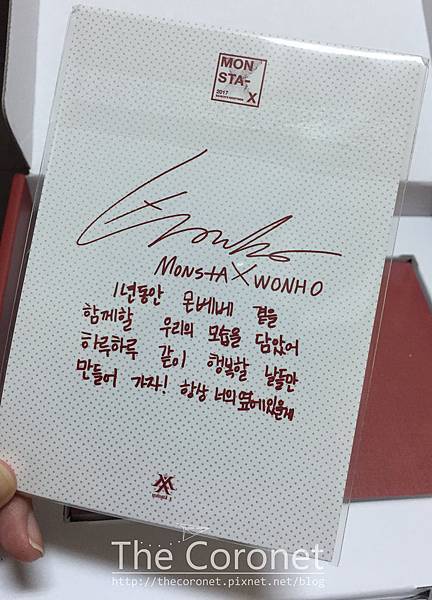 MON
STA-
X
2017
MONSTA X WONHO
1년동안 몬베베 곁을
함께할 우리의 모습을 담았어
하루하루 같이 행복할 날들만
만들어 가자! 항상 너의 옆에있을게
The Coronet
http://thecoronet.pixnet.net/blog